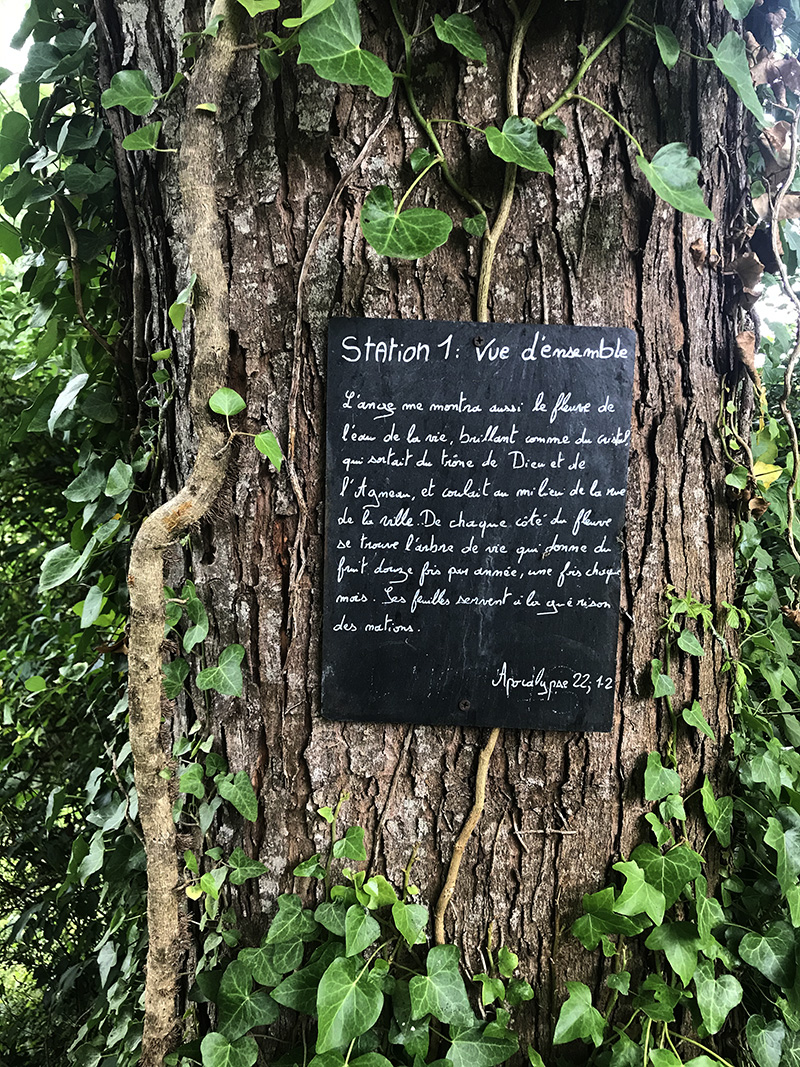 Station 1: Vue d'ensemble
L'ange me montra aussi le fleuve de
l'eau de la vie, brillant comme du cristal,
qui sortait du trône de Dieu et de
l'Agneau, et coulait au milieu de la rue
de la ville. De chaque côté du fleuve
se trouve l'arbre de vie qui donne du
fruit douze fois par année, une fois chaque
mois. Ses feuilles servent à la guérison
des nations.
Apocalypse 22, 1-2